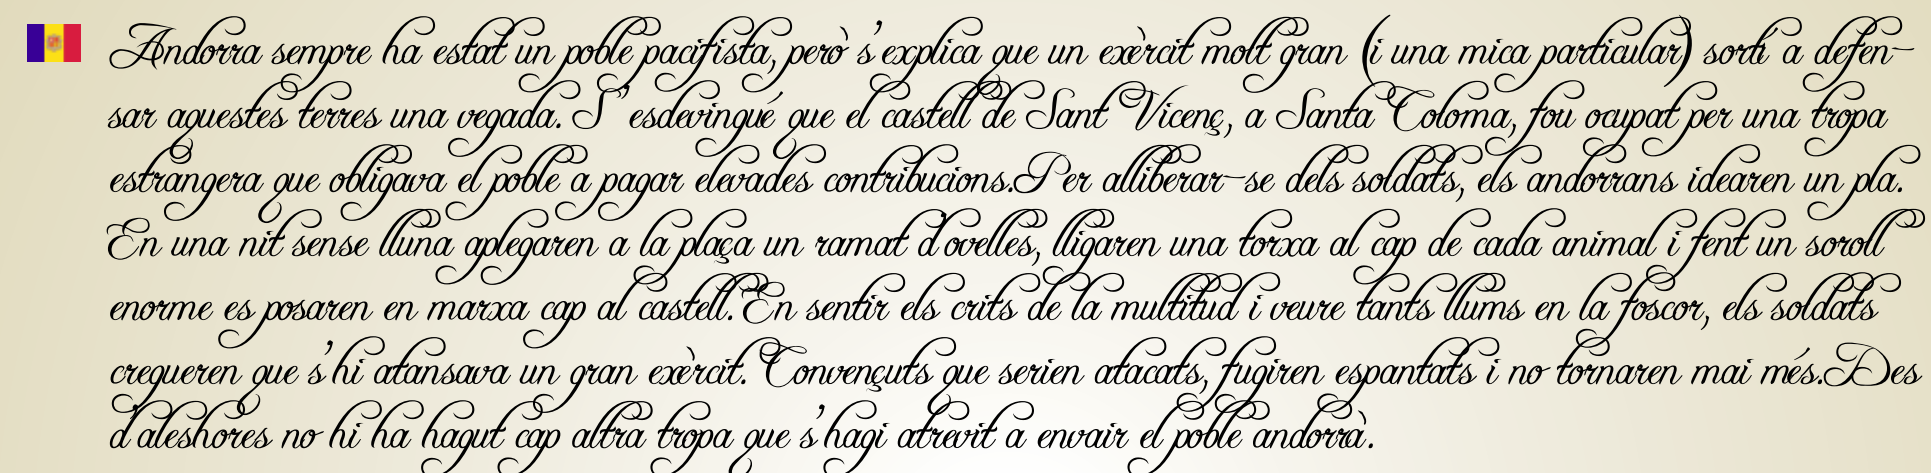 Andorra sempre ha estat un poble pacifista, però s'explica que un exèrcit molt gran (i una mica particular) sortí a defen-
sar aquestes terres una vegada. S' esdevingué que el castell de Sant Vicenç, a Santa Coloma, fou ocupat per una tropa
estrangera que obligava el poble a pagar elevades contribucions.Per alliberar-se dels soldats, els andorrans idearen un pla.
En una nit sense lluna aplegaren a la plaça un ramat d'ovelles, lligaren una torxa al cap de cada animal i fent un soroll
enorme es posaren en marxa cap al castell.En sentir els crits de la multitud i veure tants llums en la foscor, els soldats
cregueren que s'hi atansava un gran exèrcit. Convençuts que serien atacats, fugiren espantats i no tornaren mai més.Des
d'aleshores no hi ha hagut cap altra tropa que s'hagi atrevit a envair el poble andorrà.